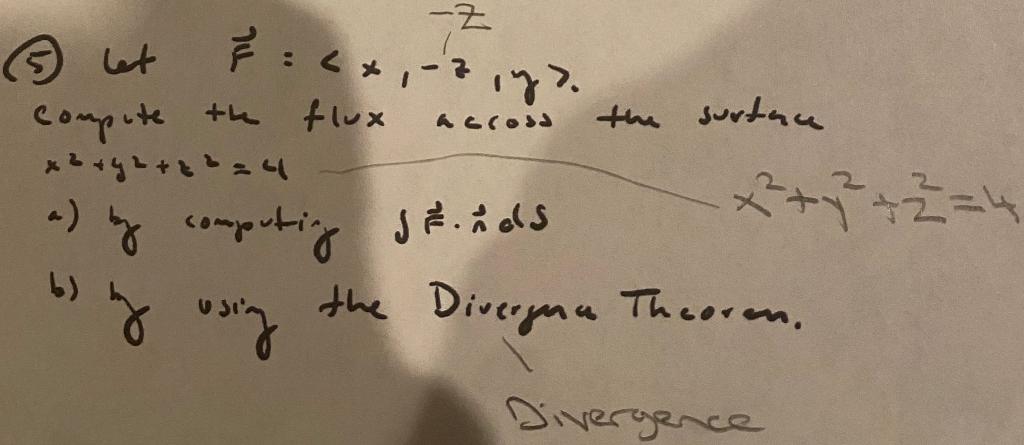 -Z
⑤ Let F⃗ = < x, -z, y >.
compute the flux across the surface
x² + y² + z² = 4
x²+y²+z²=4
a) by computing ∫ F⃗ · n⃗ dS
b) by using the Divergence Theorem.
Divergence